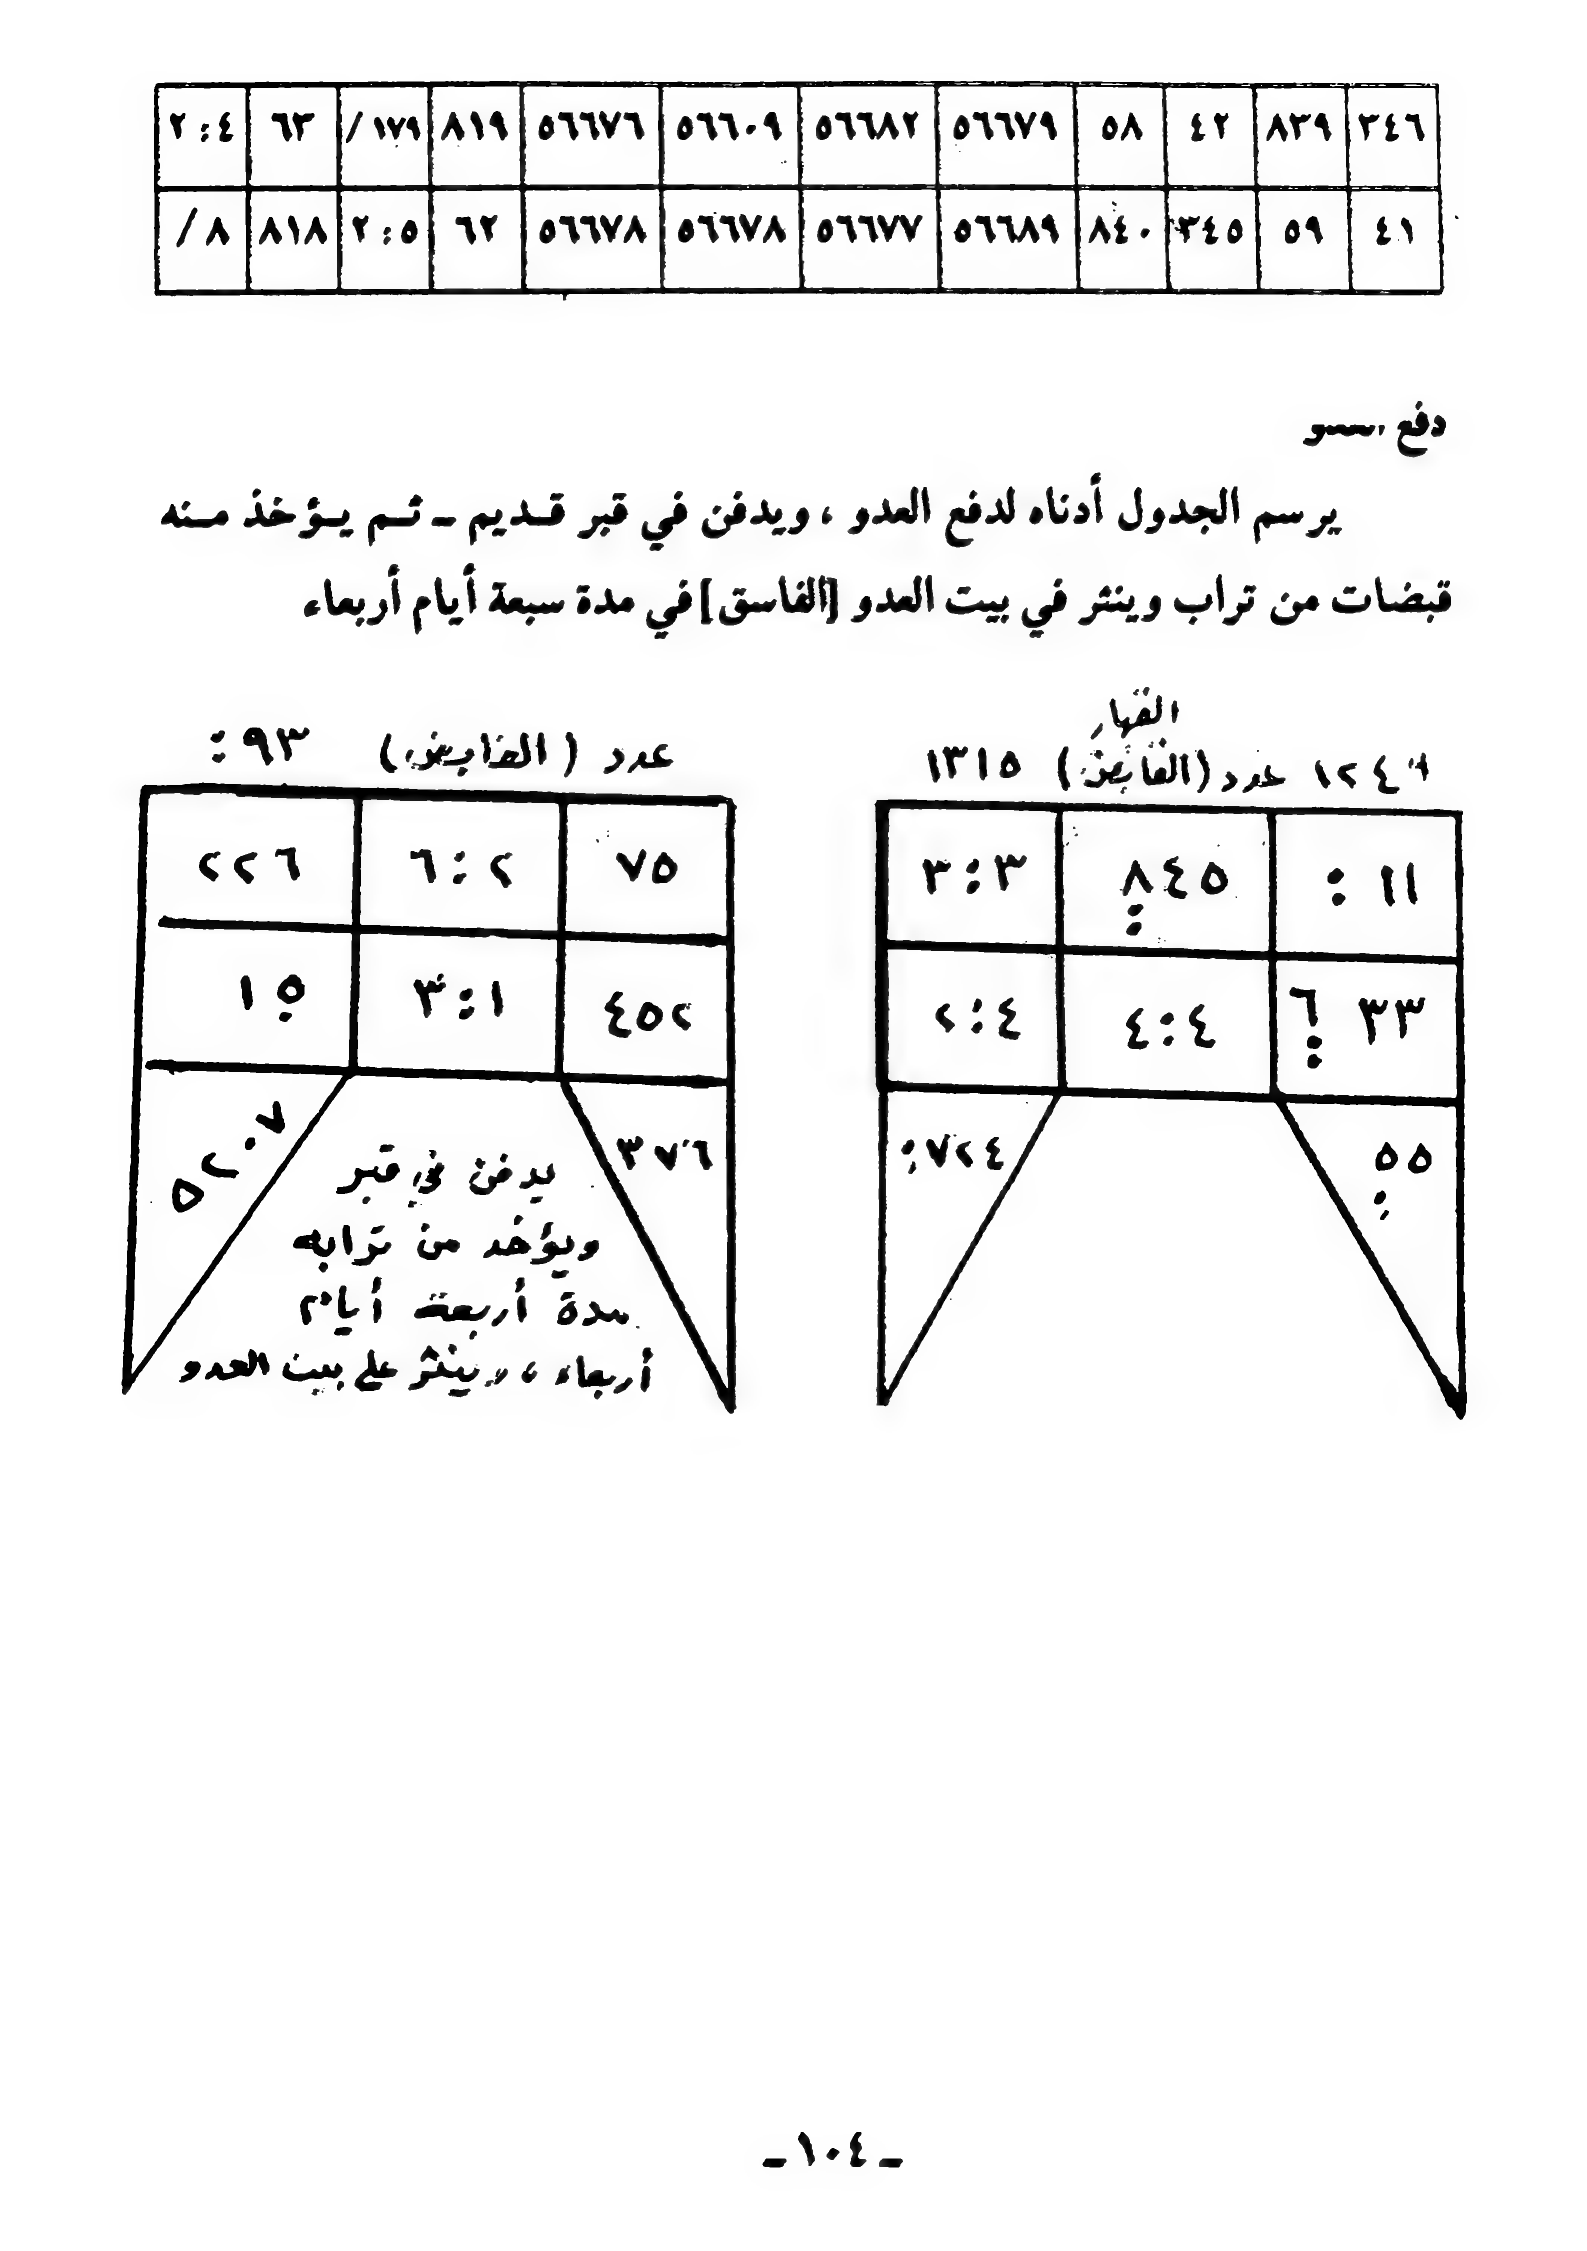 ٣٤٦ ٨٣٩ ٤٢ ٥٨ ٥٦٦٧٩ ٥٦٦٨٢ ٥٦٦٠٩ ٥٦٦٧٦ ٨١٩ ١٧٩/ ٦٣ ٢:٤
٤١ ٥٩ ٣٤٥ ٨٤٠ ٥٦٦٨٩ ٥٦٦٧٧ ٥٦٦٧٨ ٥٦٦٧٨ ٦٢ ٢:٥ ٨١٨ ٨/
دفع
يرسم الجدول أدناه لدفع العدو ، ويدفن في قبر قديم ـ ثم يؤخذ منه
قبضات من تراب وينثر في بيت العدو [الفاسق] في مدة سبعة أيام أربعاء
القهار
١٢٤ عدد (القابض) ١٣١٥
: ١١ ٨٤٥: ٣:٣
٣٣ ٦: ٤:٤ ٢:٤
٥٥: :٧٢٤
عدد ( القابض ) :٩٣
٧٥ ٦:٢ ٢٢٦
٤٥٢ ٣:١ ١٥
٣٧٦ ٥٢٠٧
يدفن في قبر
ويؤخذ من ترابه
مدة أربعة أيام
أربعاء ، وينثر على بيت العدو
ـ ١٠٤ ـ